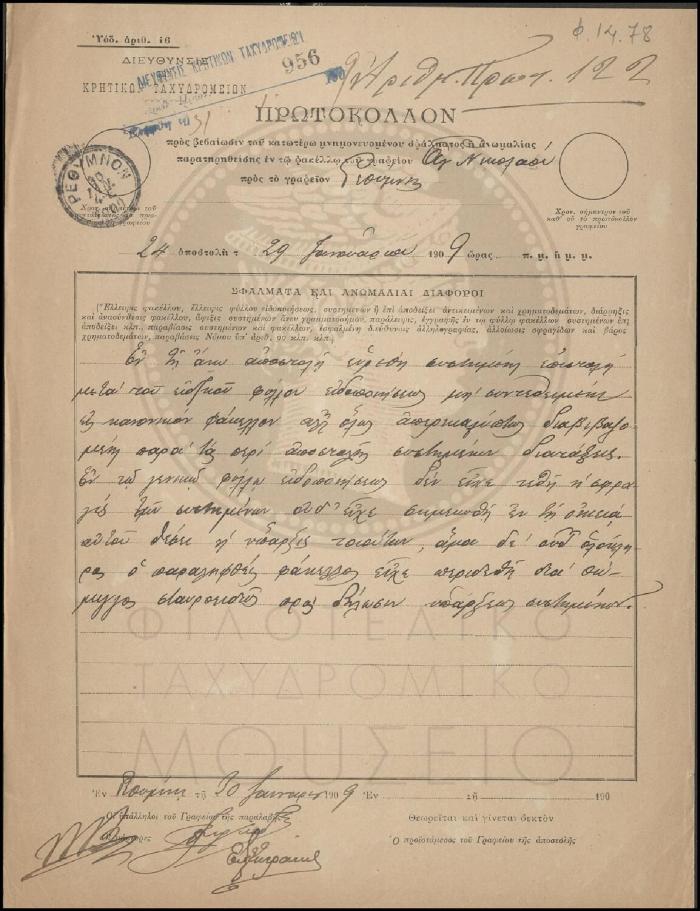 φ. 14.78
Ὑπόδ. ἀριθ. 16
ΔΙΕΥΘΥΝΣΙΣ
ΚΡΗΤΙΚΩΝ ΤΑΧΥΔΡΟΜΕΙΩΝ
ΔΙΕΥΘΥΝΣΙΣ ΚΡΗΤΙΚΩΝ ΤΑΧΥΔΡΟΜΕΙΩΝ
956
190
Ἀριθ. Πρωτ. 122
ΠΡΩΤΟΚΟΛΛΟΝ
πρὸς βεβαίωσιν τοῦ κατωτέρω μνημονευομένου σφάλματος ἢ ἀνωμαλίας
παρατηρηθείσης ἐν τῷ φακέλλῳ τοῦ γραφείου Ἁγ. Νικολάου
πρὸς τὸ γραφεῖον Ρεθύμνης
ΡΕΘΥΜΝΟΝ
Χρον. σήμαντρον τοῦ
καθ' οὗ τὸ πρωτόκολλον
γραφείου
24 ἀποστολὴ τ 29 Ἰανουαρίου 1909 ὥρας π. μ. ἢ μ. μ.
ΣΦΑΛΜΑΤΑ ΚΑΙ ΑΝΩΜΑΛΙΑΙ ΔΙΑΦΟΡΟΙ
(Ἔλλειψις φακέλλου, ἔλλειψις φύλλου εἰδοποιήσεως, συστημένων ἢ ἐπὶ ἀποδείξει ἀντικειμένων καὶ χρηματοδεμάτων, διάρρηξις
καὶ ἀποσύνθεσις φακέλλου, ἄφιξις συστημένων ἄνευ γραμματοσήμου, παράλειψις ἐγγραφῆς ἐν τῷ φύλλῳ φακέλλου συστημένων ἐπὶ
ἀποδείξει κλπ. παραβίασις συστημένων καὶ φακέλλων, ἐσφαλμένη διεύθυνσις ἀλληλογραφίας, ἀλλοίωσις σφραγίδων καὶ βάρος
χρηματοδεμάτων, παραβίασις Νόμου ὑπ' ἀριθ. κλπ. κλπ.)
Ἐν τῇ ἄνω ἀποστολῇ εὑρέθη συστημένη ἐπιστολὴ
μετὰ τοῦ εἰδικοῦ φύλλου εἰδοποιήσεως μὴ συντεθειμένη
εἰς κανονικὸν φάκελλον ἀλλ' ὅλως ἀπερικαλύπτως διαβιβαζο-
μένη παρὰ τὰς περὶ ἀποστολῆς συστημένων διατάξεις.
Ἐν τῷ γενικῷ φύλλῳ εἰδοποιήσεως δὲν εἶχε τεθῆ ἡ σφρα-
γὶς τῶν συστημένων οὐδ' εἶχε σημειωθῆ ἐν τῇ οἰκείᾳ
αὐτοῦ θέσει ἡ ὕπαρξις τοιούτων, ἅμα δὲ οὐδ' ὁλόκλη-
ρος ὁ παραληφθεὶς φάκελλος εἶχε περιδεθῆ διὰ
σταυροειδῶς πρὸς δήλωσιν ὑπάρξεως συστημένων.
ΦΙΛΟΤΕΛΙΚΟ
ΤΑΧΥΔΡΟΜΙΚΟ
ΜΟΥΣΕΙΟ
Ἐν Ρεθύμνῃ τῇ 30 Ἰανουαρίου 1909
Ἐν τῇ 190
Οἱ ὑπάλληλοι τοῦ Γραφείου τῆς παραλαβῆς
Θεωρεῖται καὶ γίνεται δεκτὸν
Ὁ προϊστάμενος τοῦ Γραφείου τῆς ἀποστολῆς